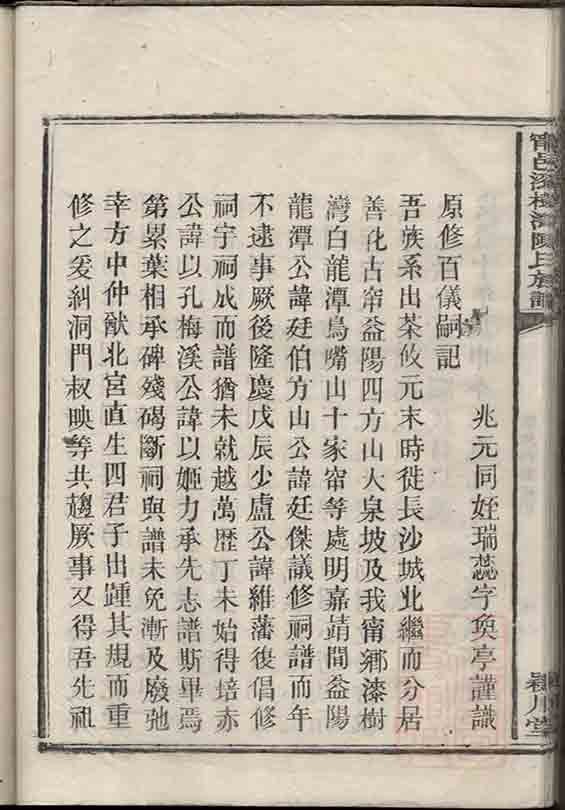 甯邑漆樹灣陳氏族譜
潁川堂
原修百儀嗣記
兆元同姪瑞蕊字奐亭謹識
吾族系出茶攸元末時徙長沙城北繼而分居
善化古帘益陽四方山大泉坡及我甯鄉漆樹
灣白龍潭鳥嘴山十家帘等處明嘉靖間益陽
龍潭公諱廷伯方山公諱廷傑議修祠譜而年
不逮事厥後隆慶戊辰少盧公諱維藩復倡修
祠宇祠成而譜猶未就越萬歷丁未始得培赤
公諱以孔梅溪公諱以姬力承先志譜斯畢焉
第累葉相承碑殘碣斷祠與譜未免漸及廢弛
幸方中仲猷北宮直生四君子出踵其規而重
修之爰糾洞門叔映等共趨厥事又得吾先祖